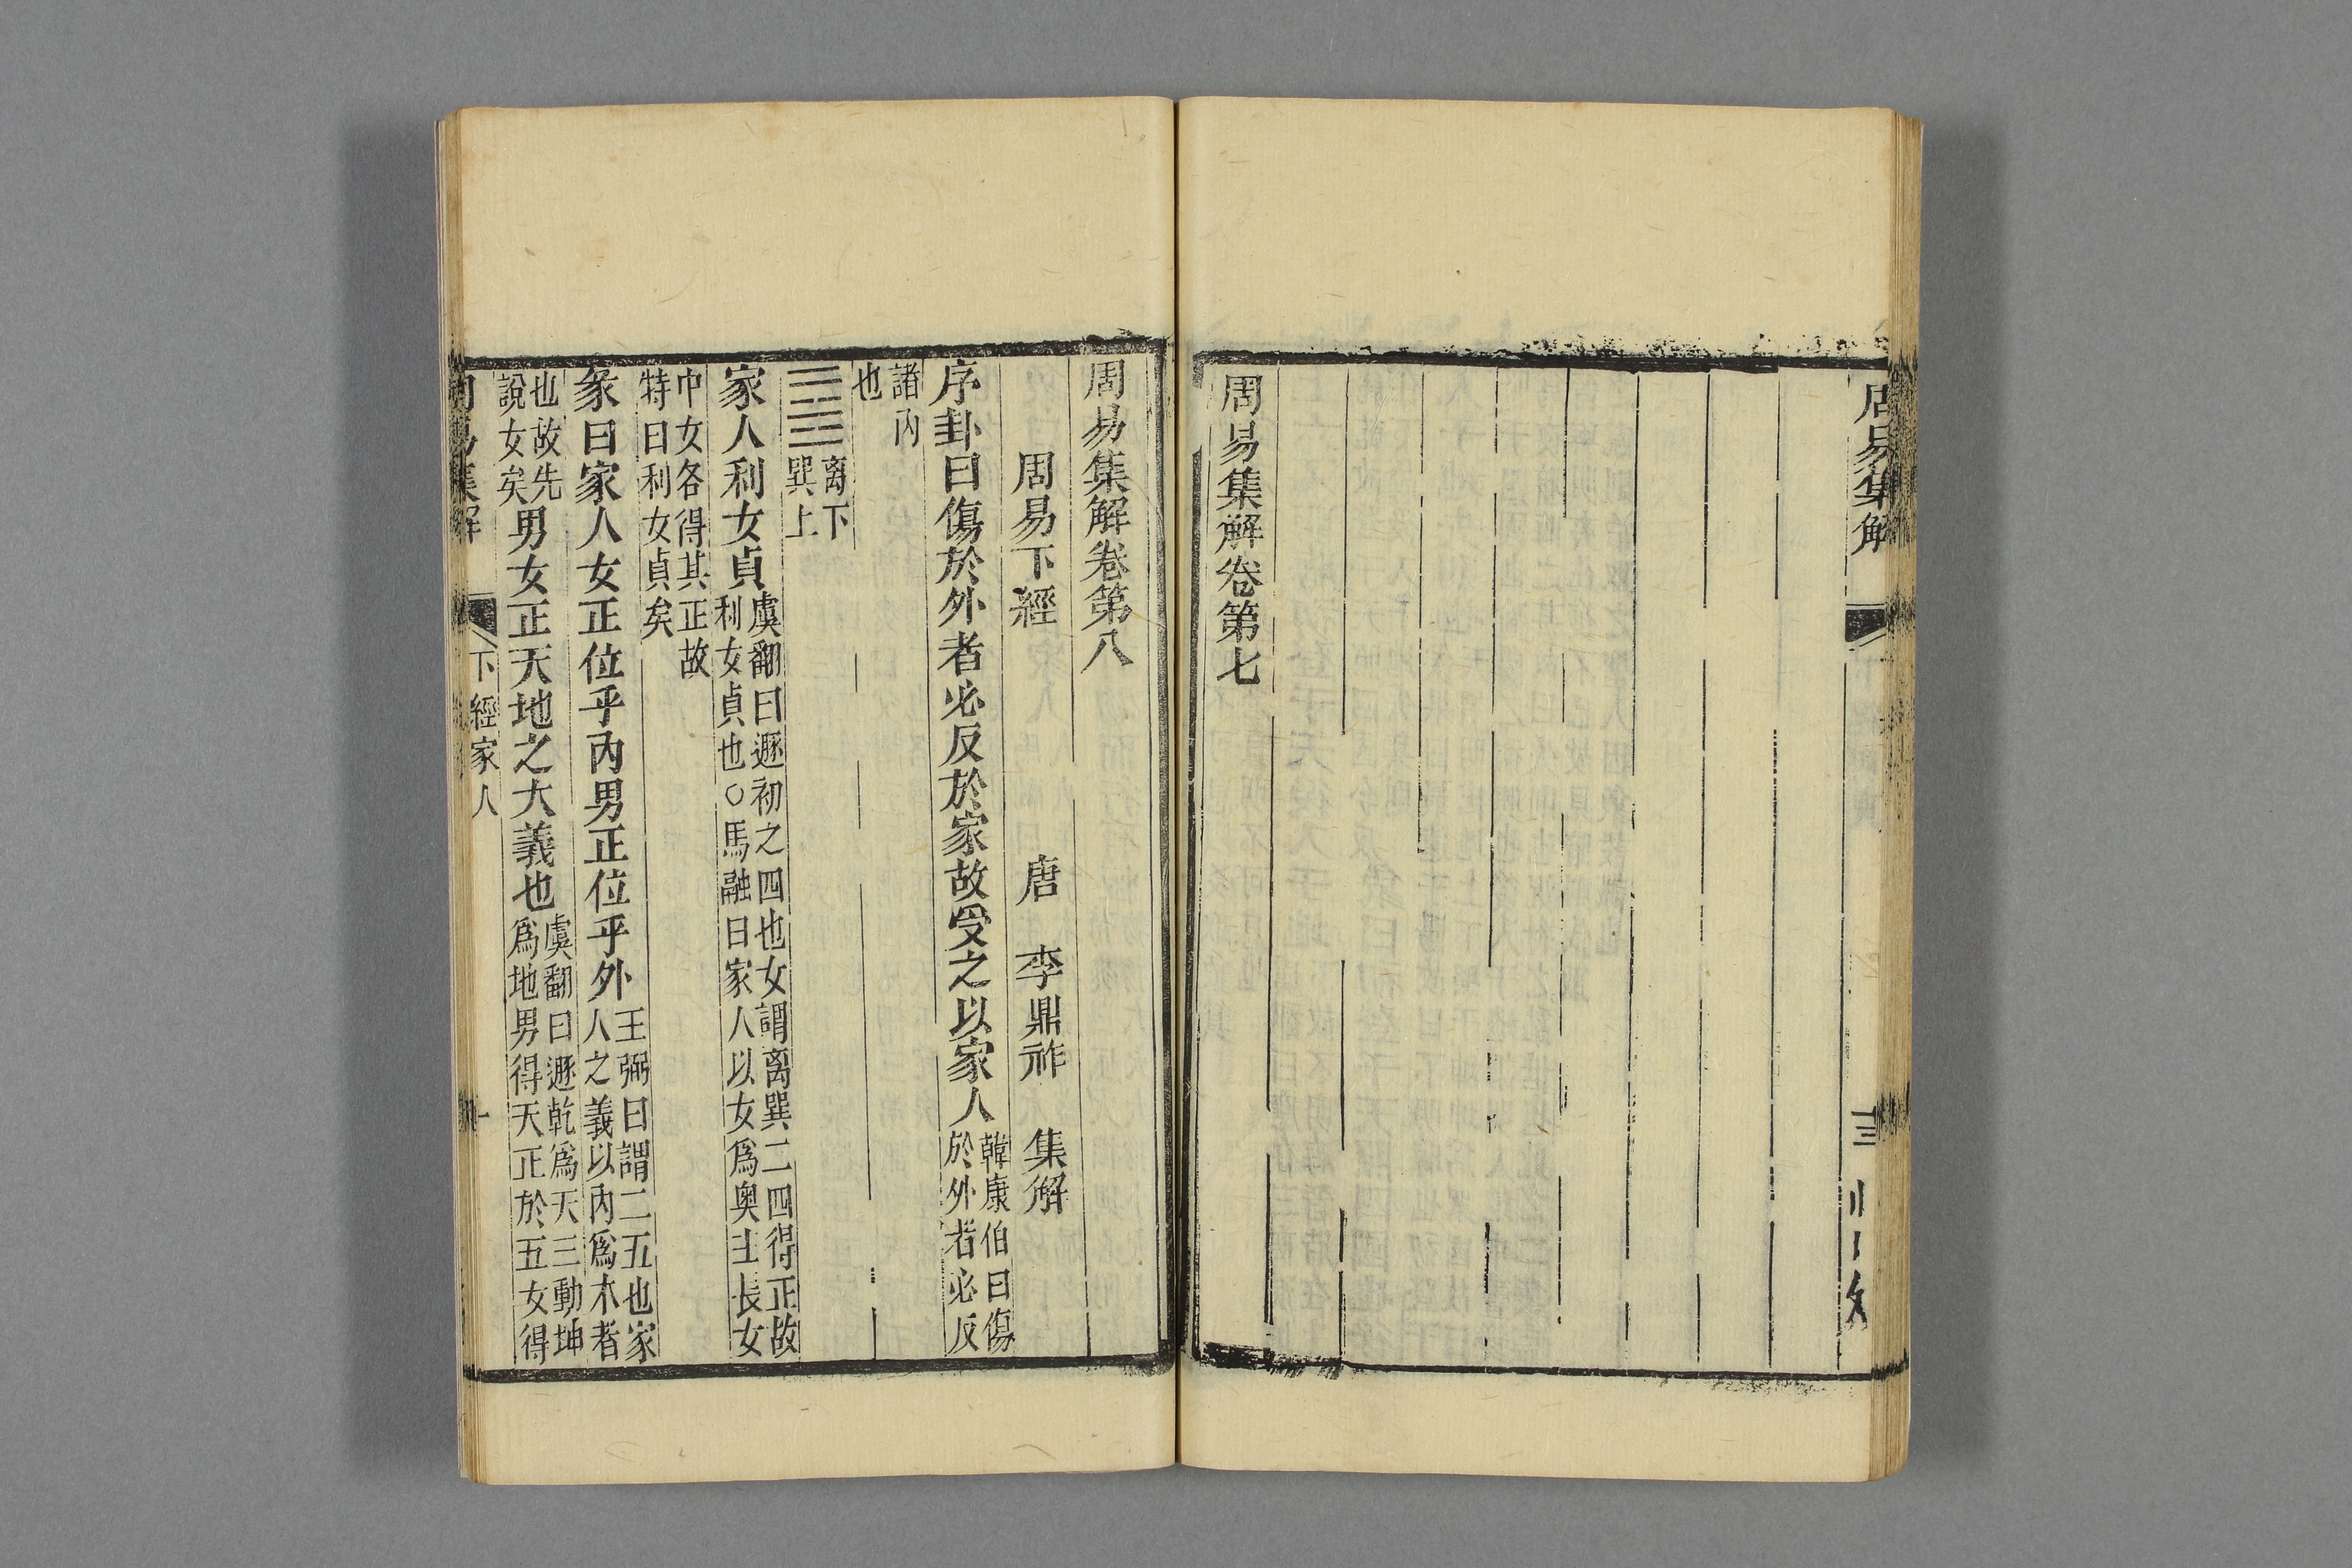 周易集解
周易集解卷第七
周易集解卷第八
周易下經 唐 李鼎祚 集解
序卦曰傷於外者必反於家故受之以家人韓康伯曰傷
於外者必反
諸內
也
䷤離下
巽上
家人利女貞虞翻曰遯初之四也女謂离巽二四得正故
利女貞也○馬融曰家人以女爲奥主長女
中女各得其正故
特曰利女貞矣
彖曰家人女正位乎內男正位乎外王弼曰謂二五也家
人之義以內爲本者
也故先
說女矣男女正天地之大義也虞翻曰遯乾爲天三動坤
爲地男得天正於五女得
周易集解 下經家人 一